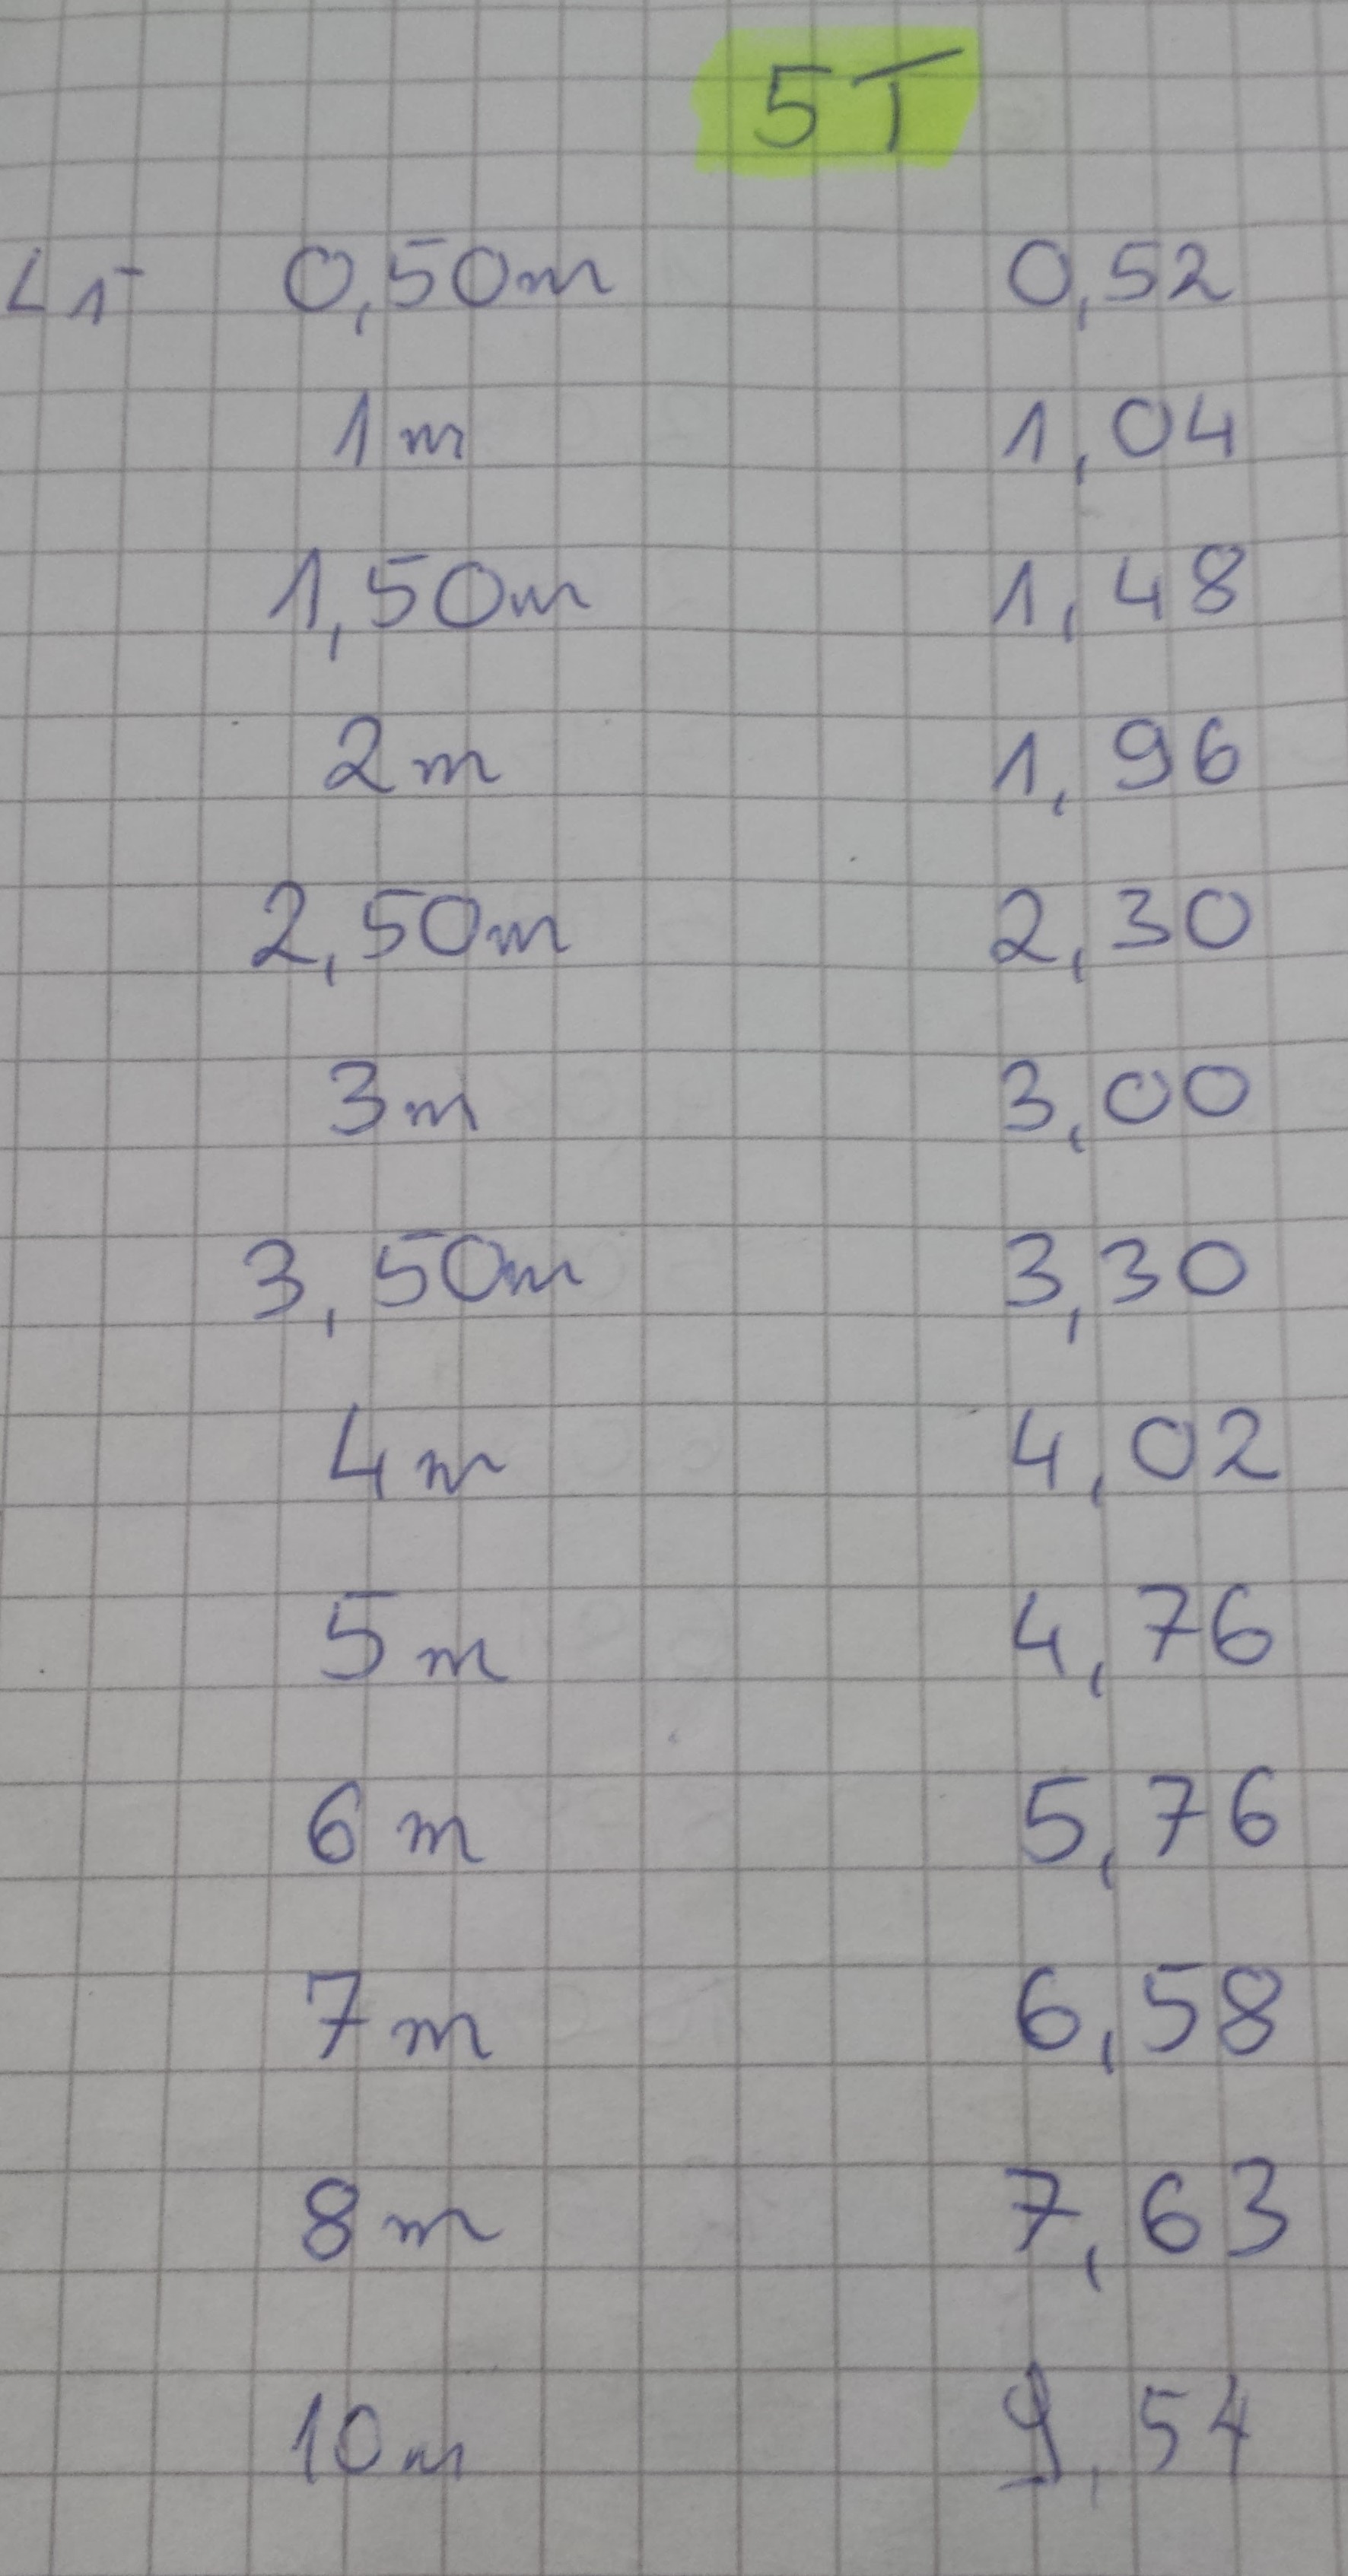 5T
L1 0,50m 0,52
1m 1,04
1,50m 1,48
2m 1,96
2,50m 2,30
3m 3,00
3,50m 3,30
4m 4,02
5m 4,76
6m 5,76
7m 6,58
8m 7,63
10m 9,54